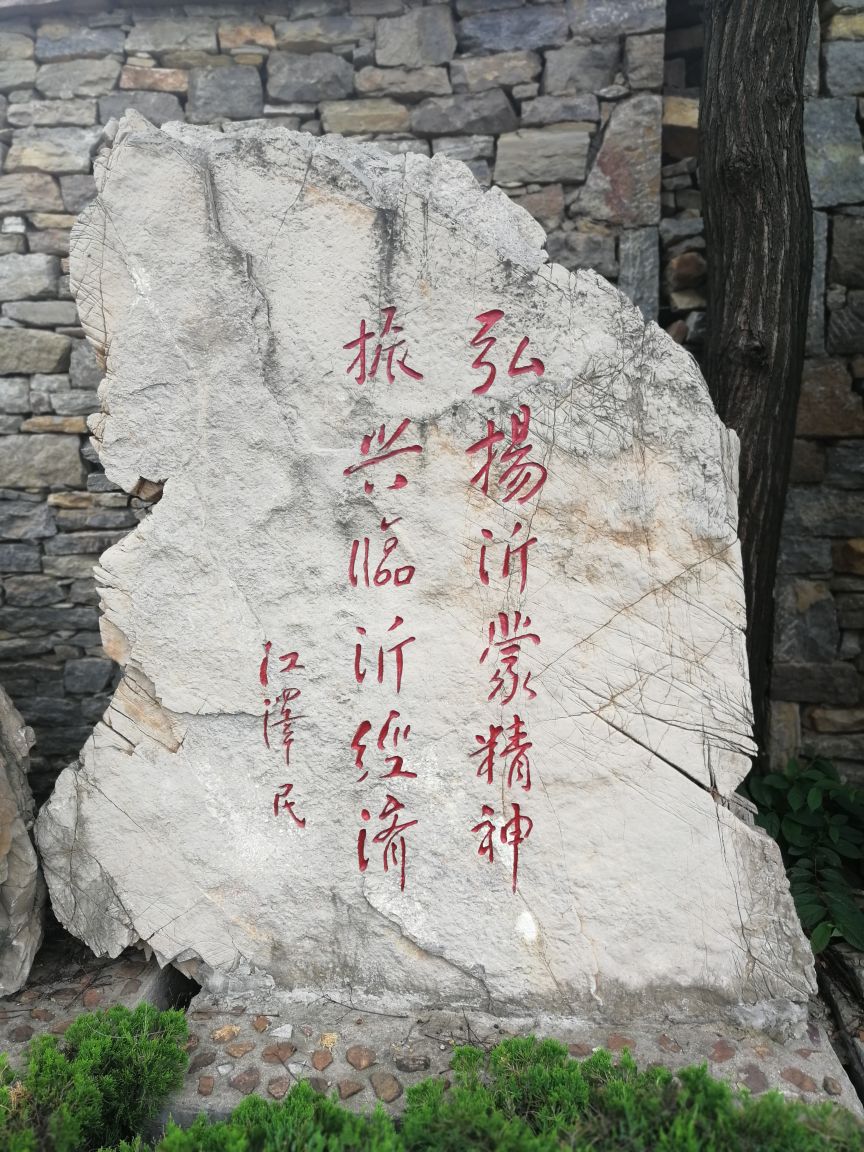 弘揚沂蒙精神
振兴臨沂經濟
江澤民